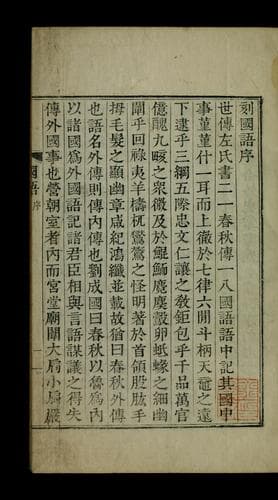 刻國語序
世傳左氏書二一春秋傳一八國語語中記其國中
事菫菫什一耳而上徵於七律六閒斗柄天黿之遠
下逮乎三綱五際忠文仁讓之敎鉅包乎千品萬官
億醜九畡之衆微及於鯤鮞麑䴠鷇卵蚳蝝之細幽
闡乎回祿夷羊檮杌鸑鷟之怪明著於首領股肱手
拇毛髮之顯幽章咸紀鴻纖並載故猶曰春秋外傳
也語名外傳則傳內傳也劉成國曰春秋以魯爲內
以諸國爲外國語記諸君臣相與言語謀議之得失
傳外國事也嘗朝室者內而宮堂廟闈大扃小扃嚴
國語 序